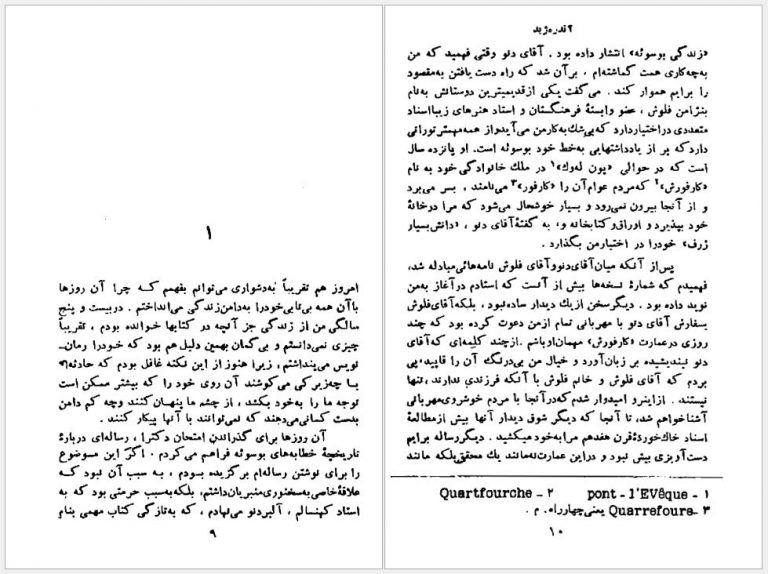 ۱
امروز هم تقریباً به‌دشواری می‌توانم بفهمم که چرا آن روزها
باآن همه بی‌تابی‌خودرا به‌دامن‌زندگی می‌انداختم . دربیست و پنج
سالگی من از زندگی جز آنچه در کتابها خوانده بودم ، تقریباً
چیزی نمی‌دانستم و بی‌گمان بهمین دلیل هم بود که خودرا رمان-
نویس می‌پنداشتم، زیرا هنوز از این نکته غافل بودم که حادثه‌ها
با چه‌زیرکی می‌کوشند آن روی خود را که بیشتر ممکن است
توجه ما را به‌خود بکشد ، از چشم ما پنهان‌کنند وچه کم دامن
بدست کسانی‌می‌دهند که نمی‌توانند با آنها پیکار کنند .
آن روزها برای گذراندن امتحان دکترا ، رساله‌ای دربارهٔ
تاریخچهٔ خطابه‌های بوسوئه فراهم می‌کردم . اگر این مسوضوع
را برای نوشتن رساله‌ام برگزیده بسودم ، به سبب آن نبود که
علاقهٔ خاصی به‌سخنوری‌منبریان‌داشتم، بلکه‌به‌سبب حرمتی بود که به
استاد کهنسالم ، آلبردنو می‌نهادم ، که به‌تازگی کتاب مهمی بنام
۹
آندره‌ژید
«زندگی بوسوئه» انتشار داده بود . آقای دنو وقتی فهمید که من
به‌چه‌کاری همت گماشته‌ام ، برآن شد که راه دست یافتن به‌مقصود
را برایم هموار کند . می‌گفت یکی ازقدیمیترین دوستانش به‌نام
بنژامن فلوش ، عضو وابستهٔ فرهنگستان و استاد هنرهای زیبااسناد
متعددی دراختیاردارد که‌بی‌شك به‌کارمن می‌آیدواز همه‌مهمتر‌توراتی
داردکه پر از یادداشتهایی به‌خط خود بوسوئه است. او پانزده سال
است که در حوالی «پون له‌وك»۱ در ملك خانوادگی خود به نام
«کارفورش»۲ که‌مردم عوام‌آن را «کارفور»۳ می‌نامند ، بسر می‌برد
و از آنجا بیرون نمی‌رود و بسیار خوشحال می‌شود که مرا درخانهٔ
خود بپذیرد و اوراق‌وکتابخانه و، به گفتهٔ‌آقای دنو ، «دانش‌بسیار
ژرف» خودرا در اختیارمن بگذارد .
پس‌از آنکه میان‌آقای‌دنووآقای فلوش نامه‌هائی‌مبادله شد،
فهمیدم که شمارهٔ نسخه‌ها بیش از آنست که استادم درآغاز به‌من
نوید داده بود . دیگرسخن ازیك دیدار ساده‌نبود ، بلکه‌آقای‌فلوش
بسفارش آقای دنو با مهربانی تمام ازمن دعوت کرده بود که چند
روزی درعمارت «کارفورش» مهمان‌اوباشم .ازچند کلمه‌ای که‌آقای
دنو نیندیشیده بر زبان‌آورد و خیال من بی‌درنگ آن را قاپید،پی
بردم که آقای فلوش و خانم فلوش با آنکه فرزندی ندارند ،تنها
نیستند . ازاینرو امیدوار شدم که‌درآنجا با مردم خوشروی‌مهربانی
آشناخواهم شد، تا آنجا که دیگر شوق دیدار آنها بیش ازمطالعهٔ
اسناد خاك‌خوردهٔ‌قرن هفدهم مرا به‌خود میکشید . دیگررساله برایم
دست‌آویزی بیش نبود و دراین عمارت‌نه‌مانند یك محقق‌بلکه مانند
۱ - pont - l'EVêque ۲ - Quartfourche
۳ - Quarrefoure یعنی‌چهارراه. م .
۱۰